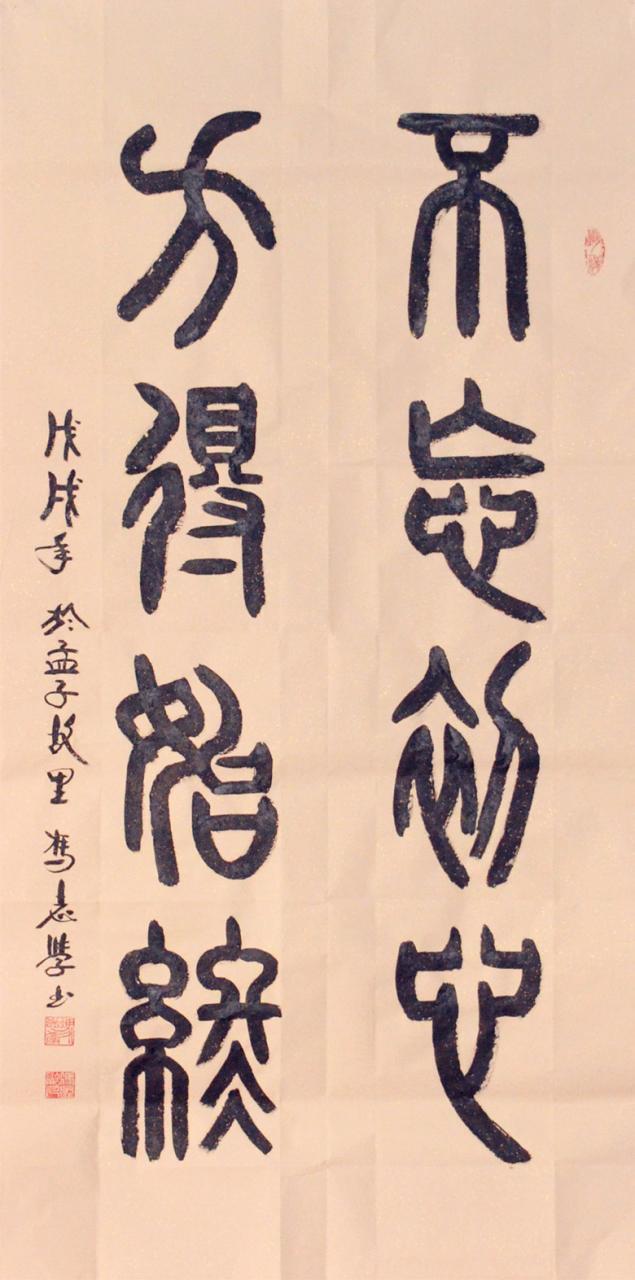 不忘初心
方得始終
戊戌年 於孟子故里 馮志學書